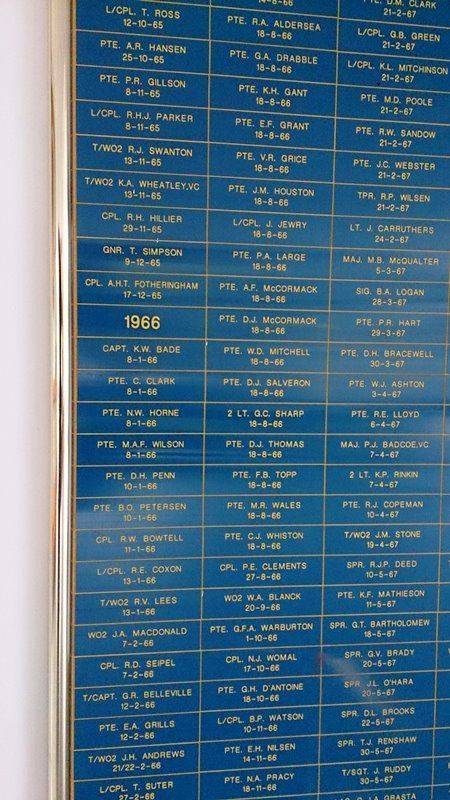 L/CPL. T. ROSS
12-10-65
PTE. A.R. HANSEN
25-10-65
PTE. P.R. GILLSON
8-11-65
L/CPL. R.H.J. PARKER
8-11-65
T/WO2 R.J. SWANTON
13-11-65
T/WO2 K.A. WHEATLEY,VC
13-11-65
CPL. R.H. HILLIER
29-11-65
GNR. T. SIMPSON
9-12-65
CPL. A.H.T. FOTHERINGHAM
17-12-65
1966
CAPT. K.W. BADE
8-1-66
PTE. C. CLARK
8-1-66
PTE. N.W. HORNE
8-1-66
PTE. M.A.F. WILSON
8-1-66
PTE. D.H. PENN
10-1-66
PTE. B.O. PETERSEN
10-1-66
CPL. R.W. BOWTELL
11-1-66
L/CPL. R.E. COXON
13-1-66
T/WO2 R.V. LEES
13-1-66
WO2 J.A. MACDONALD
7-2-66
CPL. R.D. SEIPEL
7-2-66
T/CAPT. G.R. BELLEVILLE
12-2-66
PTE. E.A. GRILLS
12-2-66
T/WO2 J.H. ANDREWS
21/22-2-66
L/CPL. T. SUTER
27-2-66
18-8-66
PTE. R.A. ALDERSEA
18-8-66
PTE. G.A. DRABBLE
18-8-66
PTE. K.H. GANT
18-8-66
PTE. E.F. GRANT
18-8-66
PTE. V.R. GRICE
18-8-66
PTE. J.M. HOUSTON
18-8-66
L/CPL. J. JEWRY
18-8-66
PTE. P.A. LARGE
18-8-66
PTE. A.F. McCORMACK
18-8-66
PTE. D.J. McCORMACK
18-8-66
PTE. W.D. MITCHELL
18-8-66
PTE. D.J. SALVERON
18-8-66
2 LT. G.C. SHARP
18-8-66
PTE. D.J. THOMAS
18-8-66
PTE. F.B. TOPP
18-8-66
PTE. M.R. WALES
18-8-66
PTE. C.J. WHISTON
18-8-66
CPL. P.E. CLEMENTS
27-8-66
WO2 W.A. BLANCK
20-9-66
PTE. G.F.A. WARBURTON
1-10-66
CPL. N.J. WOMAL
17-10-66
PTE. G.H. D'ANTOINE
18-10-66
L/CPL. B.P. WATSON
10-11-66
PTE. E.H. NILSEN
14-11-66
PTE. N.A. PRACY
18-11-66
PTE. D.M. CLARK
21-2-67
L/CPL. G.B. GREEN
21-2-67
L/CPL. K.L. MITCHINSON
21-2-67
PTE. M.D. POOLE
21-2-67
PTE. R.W. SANDOW
21-2-67
PTE. J.C. WEBSTER
21-2-67
TPR. R.P. WILSEN
21-2-67
LT. J. CARRUTHERS
24-2-67
MAJ. M.B. McQUALTER
5-3-67
SIG. B.A. LOGAN
28-3-67
PTE. P.R. HART
29-3-67
PTE. D.H. BRACEWELL
30-3-67
PTE. W.J. ASHTON
3-4-67
PTE. R.E. LLOYD
6-4-67
MAJ. P.J. BADCOE,VC
7-4-67
2 LT. K.P. RINKIN
7-4-67
PTE. R.J. COPEMAN
10-4-67
T/WO2 J.M. STONE
19-4-67
SPR. R.J.P. DEED
10-5-67
PTE. K.F. MATHIESON
11-5-67
SPR. G.T. BARTHOLOMEW
18-5-67
SPR. G.V. BRADY
20-5-67
SPR. J.L. O'HARA
20-5-67
SPR. D.L. BROOKS
22-5-67
SPR. T.J. RENSHAW
30-5-67
T/SGT. J. RUDDY
30-5-67
LA GRASTA